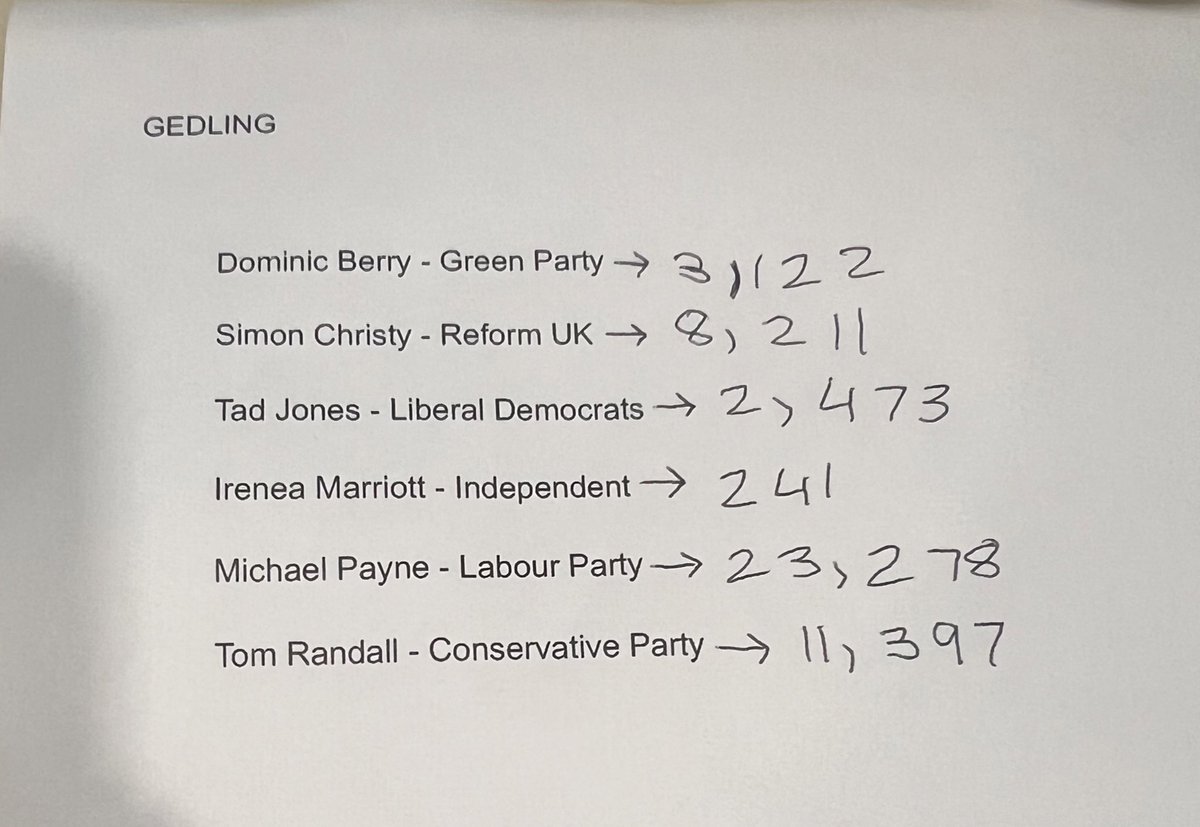 GEDLING
Dominic Berry - Green Party → 3,122
Simon Christy - Reform UK → 8,211
Tad Jones - Liberal Democrats → 2,473
Irenea Marriott - Independent → 241
Michael Payne - Labour Party → 23,278
Tom Randall - Conservative Party → 11,397